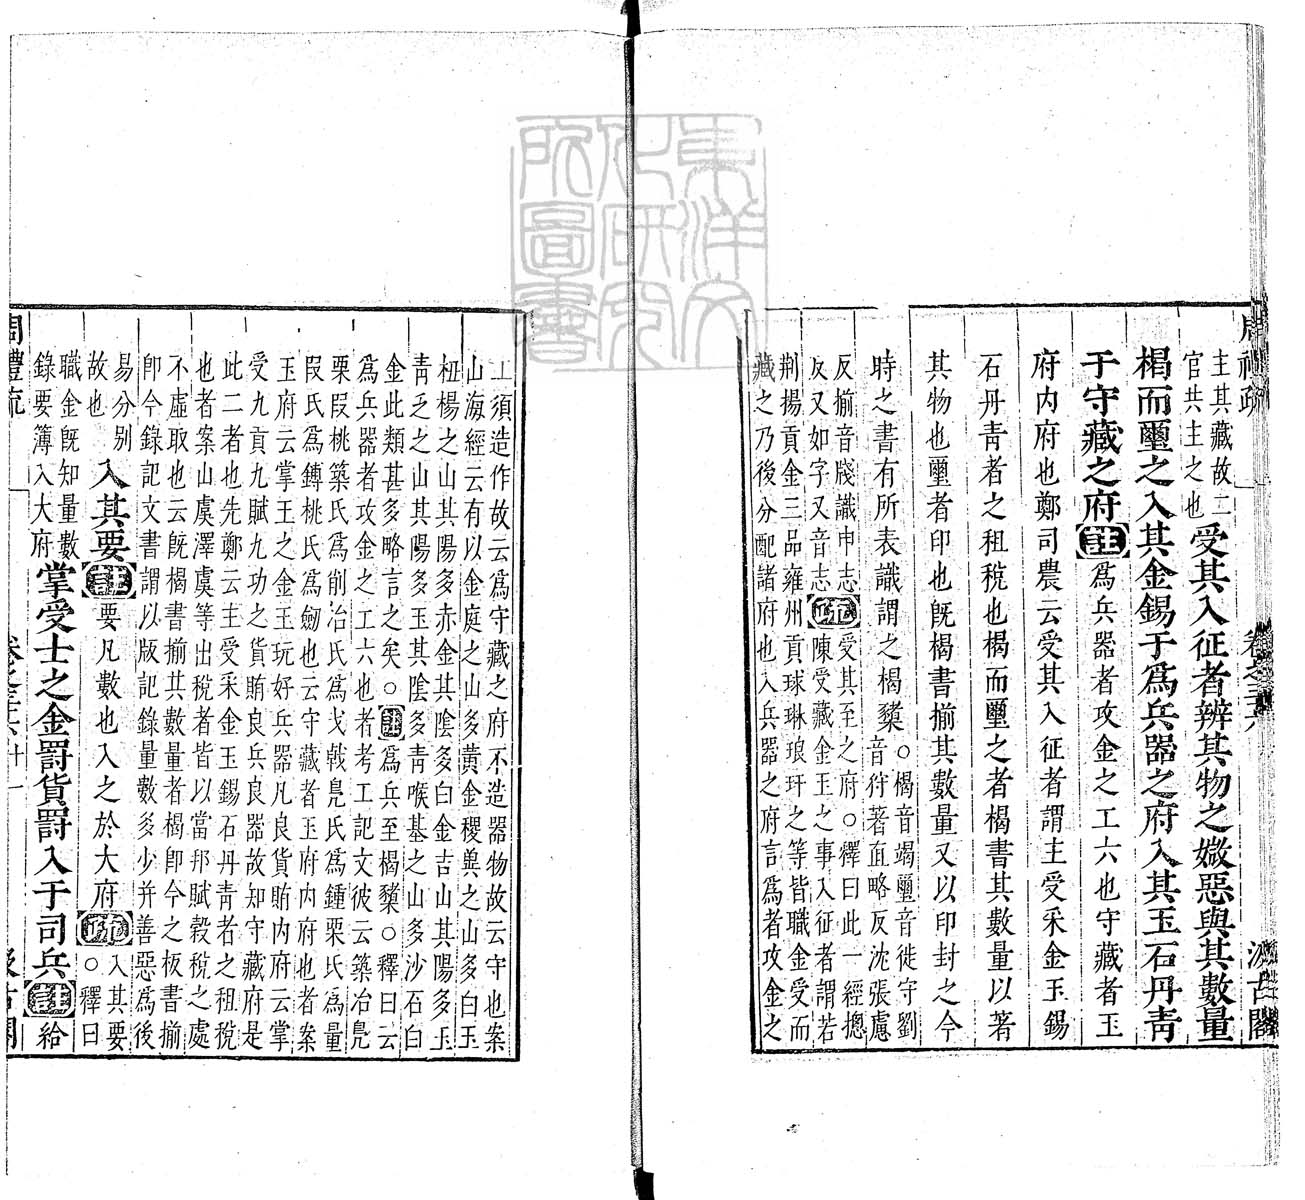 周禮疏 卷之三十六 汲古閣
主其藏故二
官共主之也
受其入征者辨其物之媺惡與其數量
楬而璽之入其金錫于爲兵器之府入其玉石丹青
于守藏之府註爲兵器者攻金之工六也守藏者玉
府内府也鄭司農云受其入征者謂主受采金玉錫
石丹青者之租稅也楬而璽之者楬書其數量以著
其物也璽者印也旣楬書揃其數量又以印封之今
時之書有所表識謂之楬櫫○楬音竭璽音徙守劉
音狩著直略反沈張慮
反揃音牋識申志
反又如字又音志
疏受其至之府○釋曰此一經摠
陳受藏金玉之事入征者謂若
荆揚貢金三品雍州貢球琳琅玕之等皆職金受而
藏之乃後分配諸府也入兵器之府言爲者攻金之
工須造作故云爲守藏之府不造器物故云守也案
山海經云有以金庭之山多黄金稷巽之山多白玉
杻楊之山其陽多赤金其陰多白金吉山其陽多玉
青乏之山其陽多玉其陰多青㕡基之山多沙石白
金此類甚多略言之矣○註爲兵至楬櫫○釋曰云
爲兵器者攻金之工六也者考工記文彼云築冶鳧
栗段桃築氏爲削冶氏爲戈戟鳧氏爲鍾栗氏爲量
段氏爲鎛桃氏爲劒也云守藏者玉府内府也者案
玉府云掌王之金玉玩好兵器凡良貨賄内府云掌
受九貢九賦九功之貨賄良兵良器故知守藏府是
此二者也先鄭云主受采金玉錫石丹青者之租稅
也者案山虞澤虞等出稅者皆以當邦賦穀稅之處
不虛取也云旣楬書揃其數量者楬卽今之板書揃
卽今錄記文書謂以版記錄量數多少并善惡爲後
易分别
故也
入其要註要凡數也入之於大府疏入其要
○釋曰
職金旣知量數
錄要簿入大府
掌受士之金罰貨罰入于司兵註給
周禮疏 卷之三十六 十一 汲古閣